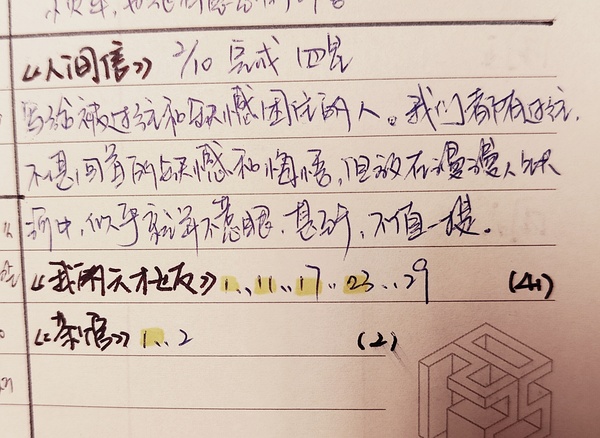 《人间信》 2/10 完成 四星
写给被过往和缺憾困住的人。我们都有过往,
不堪回首的缺憾和悔悟,但放在漫漫人生长
河中,似乎就并不惹眼,甚至,不值一提。
《我的天才女友》1..11..17..23..29 (41)
《茶馆》1..2 (2)